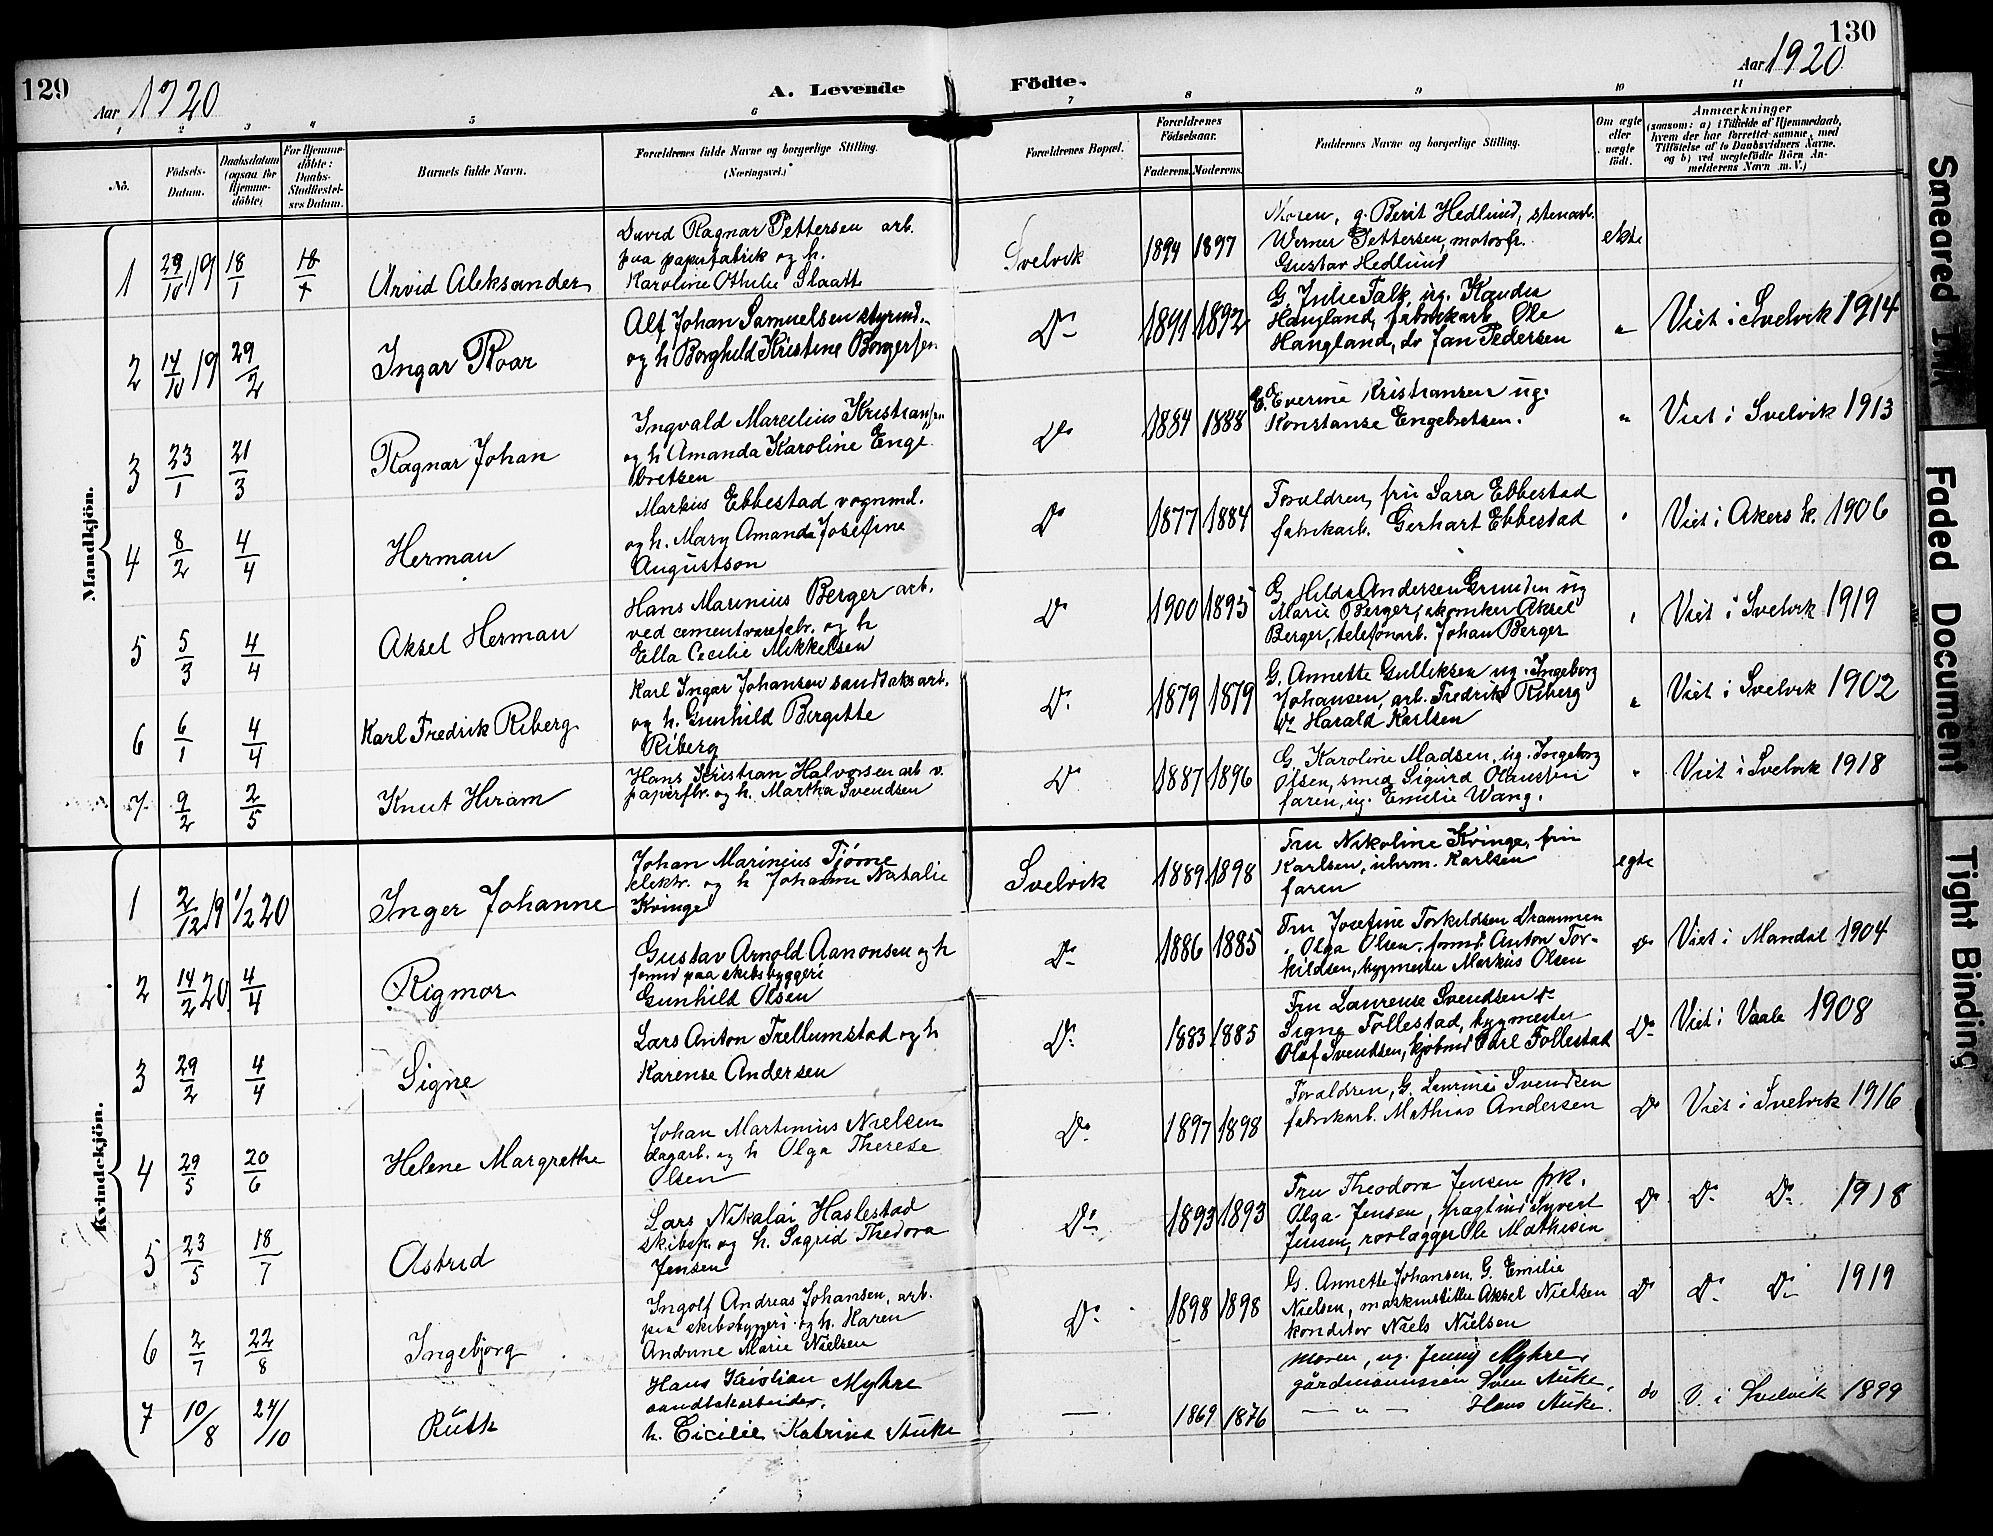 129
Aar 1920
A. Levende
Födte.
130
Aar 1920
1 2 3 4 5 6 7 8 9 10 11
No.
Födsels-
Datum.
Daabsdatum
(ogsaa for
Hjemme-
döbte)
For Hjemme-
döbte:
Daabs-
Stadfæstel-
ses Datum.
Barnets fulde Navn.
Forældrenes fulde Navne og borgerlige Stilling.
(Næringsvei.)
Forældrenes Bopæl.
Forældrenes
Födselsaar.
Faderens. Moderens.
Faddernes Navne og borgerlige Stilling.
Om ægte
eller
uægte
födt.
Anmærkninger
(saasom: a) i Tilfælde af Hjemmedaab,
hvem der har forrettet samme, med
Tilföielse af to Daabsvidners Navne.
og b) ved uægtefödte Börn An-
melderens Navn m. V.)
Mandkjön.
1 29/10 19 18/1 18/1 Arvid Aleksander
David Ragnar Pettersen arb.
paa papirfabrik og h.
Karoline Othilie Slaatt
Svelvik 1894 1897
Moren, g. Berit Hedlund, stenarb.
Werner Pettersen, motorfr.
Gustav Hedlund
ekte
2 14/10 19 29/2 Ingar Roar
Alf Johan Samuelsen styrmd.
og h Borghild Kristine Borgersen
Do 1891 1892
G. Julie Falk, ug. Kandis
Haugland, fabrikarb. Ole
Haugland, do Jan Pedersen
" Viet i Svelvik 1914
3 23/1 21/3 Ragnar Johan
Ingvald Marcelius Kristiansen
og h Amanda Karoline Enge
bretsen
Do 1884 1888
G. Everine Kristiansen ug.
Konstanse Engebretsen.
" Viet i Svelvik 1913
4 8/2 4/4 Herman
Markus Ebbestad vognmd.
og h. Mary Amanda Josefine
Augustson
Do 1877 1884
Forældren, fru Sara Ebbestad
fabrikarb. Gerhart Ebbestad
" Viet i Akers k. 1906
5 5/3 4/4 Aksel Herman
Hans Marinius Berger arb.
ved cementvarefabr. og h
Ella Cecilie Mikkelsen
Do 1900 1895
G. Hilda Andersen Grunden ug
Marie Berger, skomker Aksel
Berger, telefonarb. Johan Berger
" Viet i Svelvik 1919
6 6/1 4/4 Karl Fredrik Riberg
Karl Ingar Johansen sandtaksarb.
og h. Gunhild Bergitte
Riberg
Do 1879 1879
G. Annette Gulliksen ug. Ingeborg
Johansen, arb. Fredrik Riberg
Do Harald Karlsen
" Viet i Svelvik 1902
7 9/2 2/5 Knut Hiram
Hans Kristian Halvorsen arb v.
papirfbr. og h. Martha Svendsen
Do 1887 1896
G. Karoline Madsen, ug. Ingeborg
Olsen, smed Sigurd Olaussen
faren, ug. Emilie Wang.
" Viet i Svelvik 1918
Kvindekjön.
1 2/12 19 1/2 20 Inger Johanne
Johan Marinius Tjøme
elektr. og h Johanne Natalie
Kvinge
Svelvik 1889 1898
Fru Nikoline Kvinge, fru
Karlsen, uhrm. Karlsen
faren
egte
2 14/2 20 4/4 Rigmor
Gustav Arnold Aanonsen og h
formd paa skibsbyggeri
Gunhild Olsen
Do 1886 1885
Fru Josefine Torkildsen Drammen
Olga Olsen, formd. Anton Tor-
kildsen, bygmester Markus Olsen
do Viet i Mandal 1904
3 29/2 4/4 Signe
Lars Anton Trellumstad og h
Karense Andersen
Do 1883 1885
Fru Laurense Svendsen do
Signe Follestad, bygmester
Olaf Svendsen, kjøbmd Carl Follestad
Do Viet i Vaale 1908
4 29/5 20/6 Helene Margrethe
Johan Martinius Nielsen
dagarb. og h Olga Therese
Olsen
Do 1897 1898
Forældren, G. Laurines Svendsen
fabrikarb. Mathias Andersen
Do Viet i Svelvik 1916
5 23/5 18/7 Astrid
Lars Nikolai Haslestad
skibsf. og h. Sigrid Thedora
Jensen
Do 1893 1893
Fru Theodora Jensen frk.
Olga Jensen, fragtmd Syvert
Jensen, rorlægger Ole Mathesen
Do Do Do 1918
6 2/7 22/8 Ingebjørg
Ingolf Andreas Johansen, arb.
paa skibsbyggeri og h. Karen
Andrine Marie Nielsen
Do 1898 1898
G. Annette Johansen, G. Emilie
Nielsen, maskinstiller Aksel Nielsen
konditor Niels Nielsen
Do Do Do 1919
7 10/8 24/10 Ruth
Hans Kristian Myhre
sandtakarbeider.
h. Cicilie Katrine Stuke
— 1869 1876
Moren, ug. Jenny Myhre,
gårdmannssøn Sven Stuke,
— " — Hans Stuke.
do V. i Svelvik 1899
Smeared Ink
Faded Document
Tight Binding